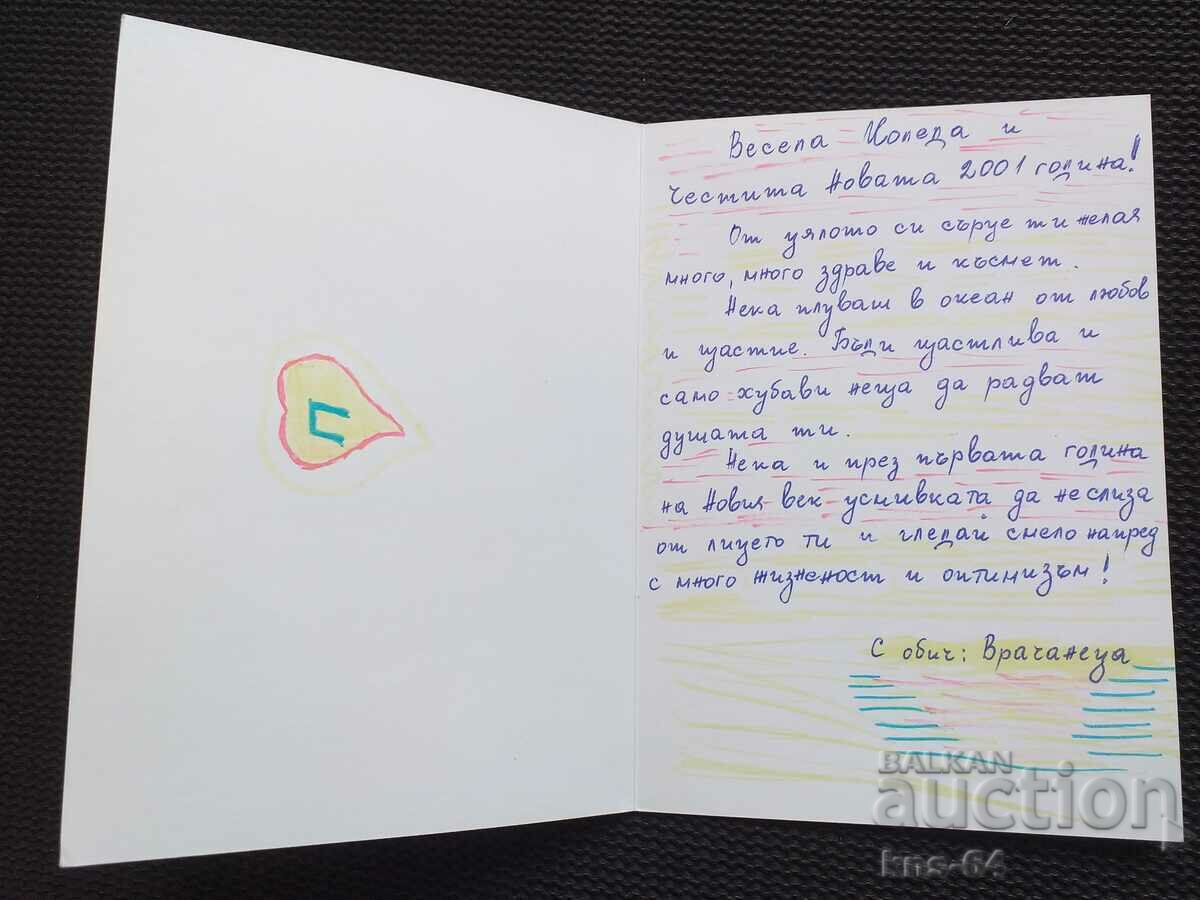 П
Весела Коледа и
Честита Новата 2001 година!
От цялото си сърце ти желая
много, много здраве и късмет.
Нека плуваш в океан от любов
и щастие. Бъди щастлива и
само хубави неща да радват
душата ти.
Нека и през първата година
на Новия век усмивката да не слиза
от лицето ти и гледай смело напред
с много жизненост и оптимизъм!
С обич: Врачанеца
BALKAN
auction
kns-64